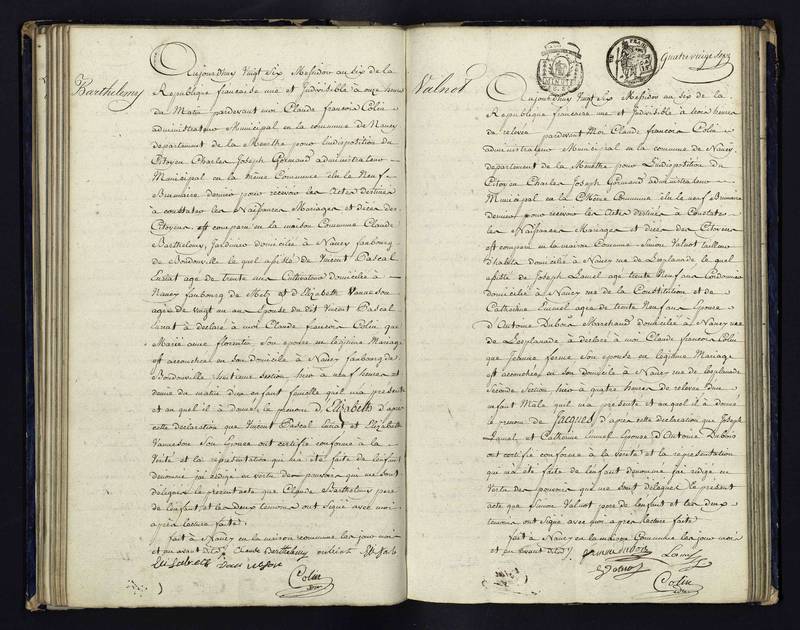 Barthelemy
Aujourdhuy vingt Six Messidor au six de la
Republique francaise une et Indivisible à onze heures
du Matin pardevant moi Claude francois Colin
administrateur Municipal en la commune de Nancy
departement de la Meurthe pour Lindisposition du
Citoyen Charles Joseph Gormand administrateur
Municipal en la même Commune élu le Neuf
Brumaire dernier pour recevoir les Actes destinés
à constater les Naissances Mariages et décès des
Citoyens, est comparu en la maison Commune Claude
Barthelemy, Jardinier domicilié à Nancy faubourg
de Boudonville lequel assisté de Vincent Pascal
agé de trente ans Cultivateur domicilié à
Nancy faubourg de Metz et d'Elizabeth Vanneson
agée de vingt un ans Epouse du dit Vincent Pascal
à declaré à moi Claude francois Colin que
Marie anne florentin Son epouse en legitime Mariage
est accouchée en son domicile à Nancy faubourg de
Boudonville huitieme section, hier à neuf heures et
demie du matin d'un enfant femelle quil ma presenté
et auquel il à donné le prenom d'Elizabeth d'après
cette déclaration que Vincent Pascal et Elizabeth
Vanneson Son Epouse ont certifié conforme à la
Verité et la representation qui ma été faite de lenfant
denommé jai rédigé en vertu des pouvoirs qui me sont
delegués le present acte que Claude Barthelemy pere
de lenfant et les deux temoins ont Signé avec moi
après lecture faite.
fait à Nancy en la maison commune les jour mois
et an avant dits Claude Barthelemy
Colin
Quatre vingt
Valnot
Aujourdhuy vingt Six Messidor au six de la
Republique francaise une et Indivisible à trois heures
de relevée pardevant Moi Claude francois Colin
administrateur Municipal en la commune de Nancy
departement de la Meurthe pour Lindisposition du
Citoyen Charles Joseph Gormand administrateur
Municipal en la Même Commune élu le neuf Brumaire
dernier pour recevoir les Actes destinés à Constater
les Naissances Mariages et décès des Citoyens
est comparu en la maison Commune Simon Valnot tailleur
dhabits domicilié à Nancy rue de Lesplanade lequel
assisté de Joseph agé trente Neuf ans
domicilié à Nancy rue de la Constitution et de
Catherine agée de trente Neuf ans Epouse
d'Antoine Dubois Marchand domicilié à Nancy rue
de Lesplanade à déclaré à moi Claude francois Colin
que Jeanne ferme Son epouse en legitime Mariage
est accouchée en son domicile à Nancy rue de Lesplanade
Seconde Section, hier à quatre heures de relevée d'un
enfant Male quil ma presenté et auquel il à donné
le prenom de Jacques d'apres cette declaration que Joseph
et Catherine Epouse d'Antoine Dubois
ont certifié conforme à la Verité et la representation
qui ma été faite de lenfant denommé jai rédigé en
Vertu des pouvoirs qui me sont délegués le present
acte que Simon Valnot pere de lenfant et les deux
temoins ont Signé avec moi après lecture faite
fait à Nancy en la maison Commune les jour mois
et an avant dits
Valnot
Colin